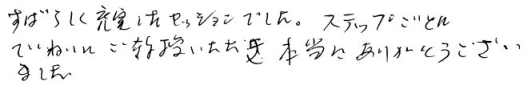 すばらしく充実したセッションでした。ステップごとに
ていねいにご教授いただき本当にありがとうござい
ました